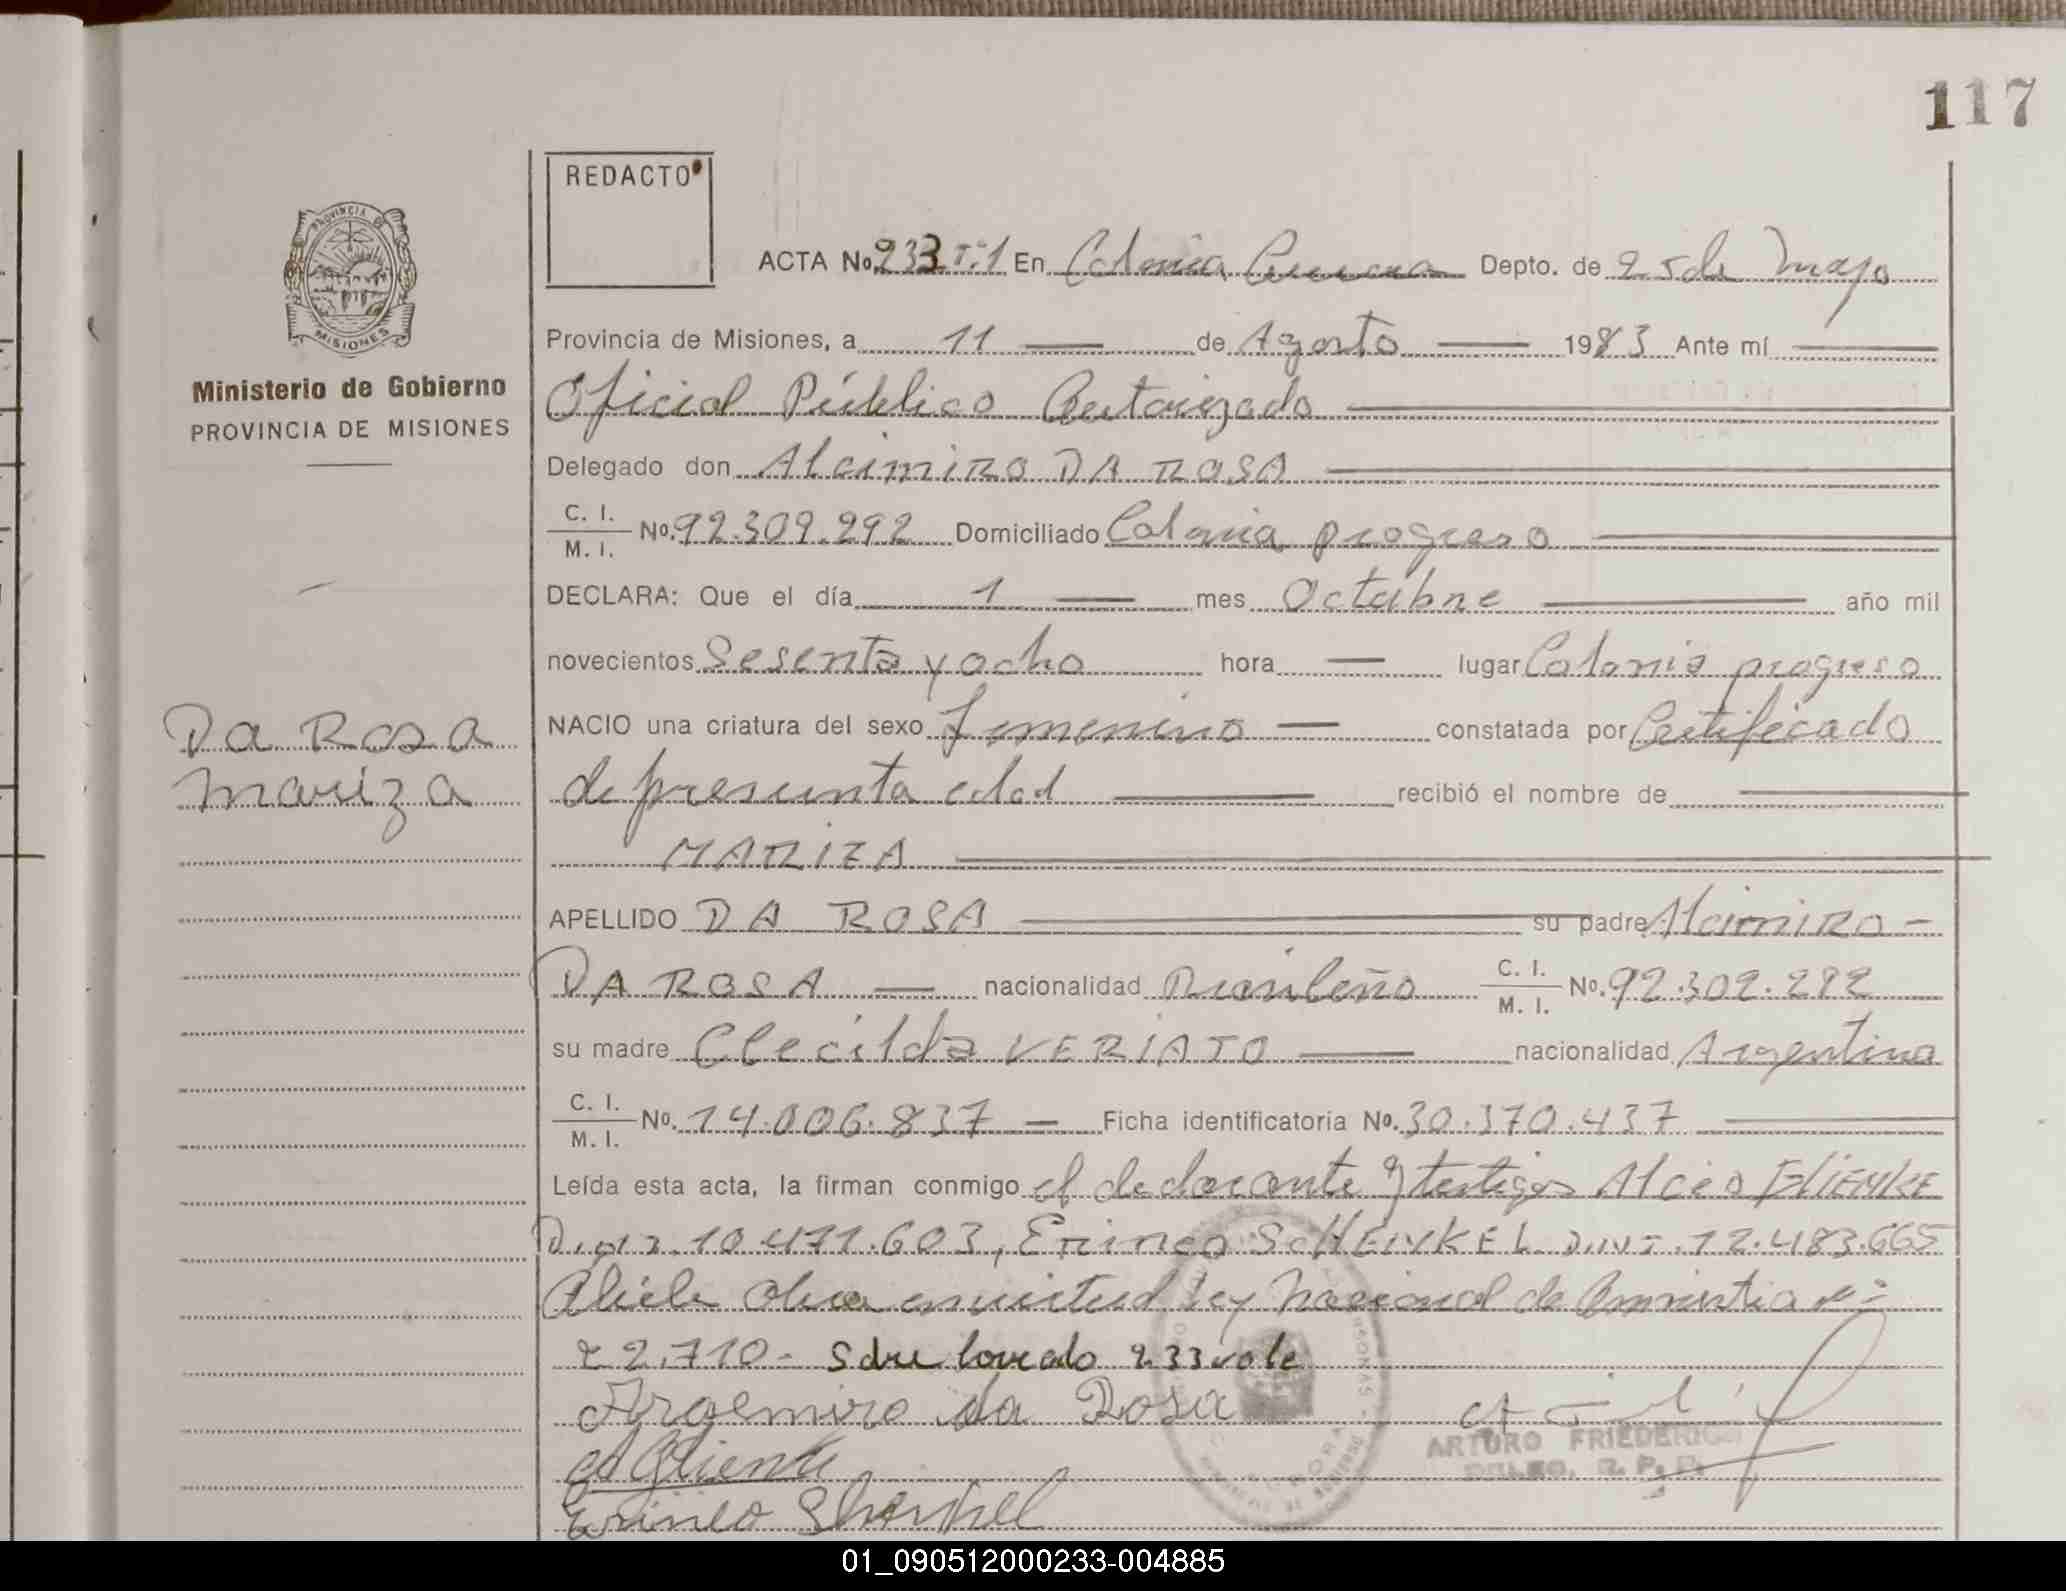 117
REDACTO
PROVINCIA DE
MISIONES
ACTA No. 233 Tº:1 En Colonia Aurora Depto. de 25 de Mayo
Provincia de Misiones, a 11 de Agosto 1983 Ante mí
Ministerio de Gobierno
PROVINCIA DE MISIONES
Oficial Público Autorizado
Delegado don Alcimiro DA ROSA
C. I.
M. I. No. 92.309.292 Domiciliado Colonia progreso
DECLARA: Que el día 1 mes Octubre año mil
novecientos Sesenta y ocho hora lugar Colonia progreso
Da Rosa
Mariza
NACIO una criatura del sexo femenino constatada por Certificado
de presunta edad recibió el nombre de
MARIZA
APELLIDO DA ROSA su padre Alcimiro
DA ROSA nacionalidad Brasileño C. I.
M. I. No. 92.309.292
su madre Clecilda VERIATO nacionalidad Argentina
C. I.
M. I. No. 14.006.837 Ficha identificatoria No. 30.370.437
Leída esta acta, la firman conmigo el declarante y testigos Alceo
10.471.603, Erineo SCHENKEL D.N.I. 12.483.665
en virtud ley Nacional de Amnistia nº:
22.710.- Sobre borrado 233 vale
Argemiro da Rosa
Erineo Shenkel
ARTURO FRIEDERICH
DELEG. R. P. P.
01_090512000233-004885